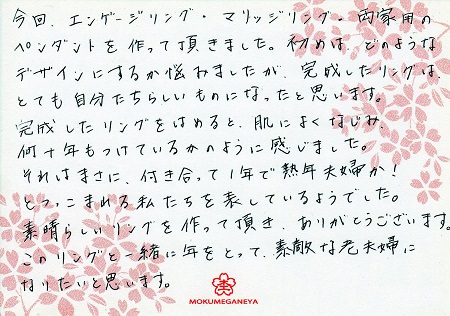 今回、エンゲージリング・マリッジリング・両家用の
ペンダントを作って頂きました。初めは、どのような
デザインにするか悩みましたが、完成したリングは、
とても自分たちらしいものになったと思います。
完成したリングをはめると、肌によくなじみ、
何十年もつけているかのように感じました。
それはまさに、付き合って1年で熟年夫婦か!
とつっこまれる私たちを表しているようでした。
素晴らしいリングを作って頂き、ありがとうございます。
このリングと一緒に年をとって、素敵な老夫婦に
なりたいと思います。
MOKUMEGANEYA